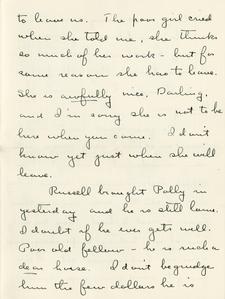 to leave us. The poor girl cried
when she told me, she thinks
so much of her work - but for
some reason she has to leave.
She is awfully nice, Darling,
and I'm sorry she is not to be
here when you come. I don't
know yet just when she will
leave.
Russell brought Polly in
yesterday and he is still lame.
I doubt if he ever gets well.
Poor old fellow - he is such a
dear horse. I don't begrudge
him the few dollars he is